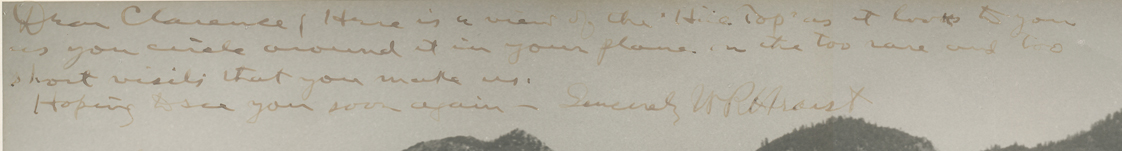 Dear Clarence, Here is a view of the "Hill Top" as it looks to you
as you circle around it in your plane. on the too rare and too
short visits that you make us.
Hoping to see you soon again – Sincerely W R Hearst